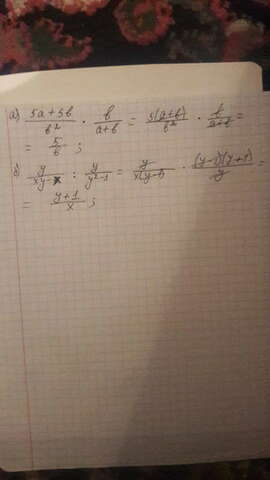 а) (5a+5b)/b² · b/(a+b) = 5(a+b)/b² · b/(a+b) =
= 5/b ;
б) y/(xy-x) : y/(y²-1) = y/(x(y-1)) · (y-1)(y+1)/y =
= (y+1)/x ;